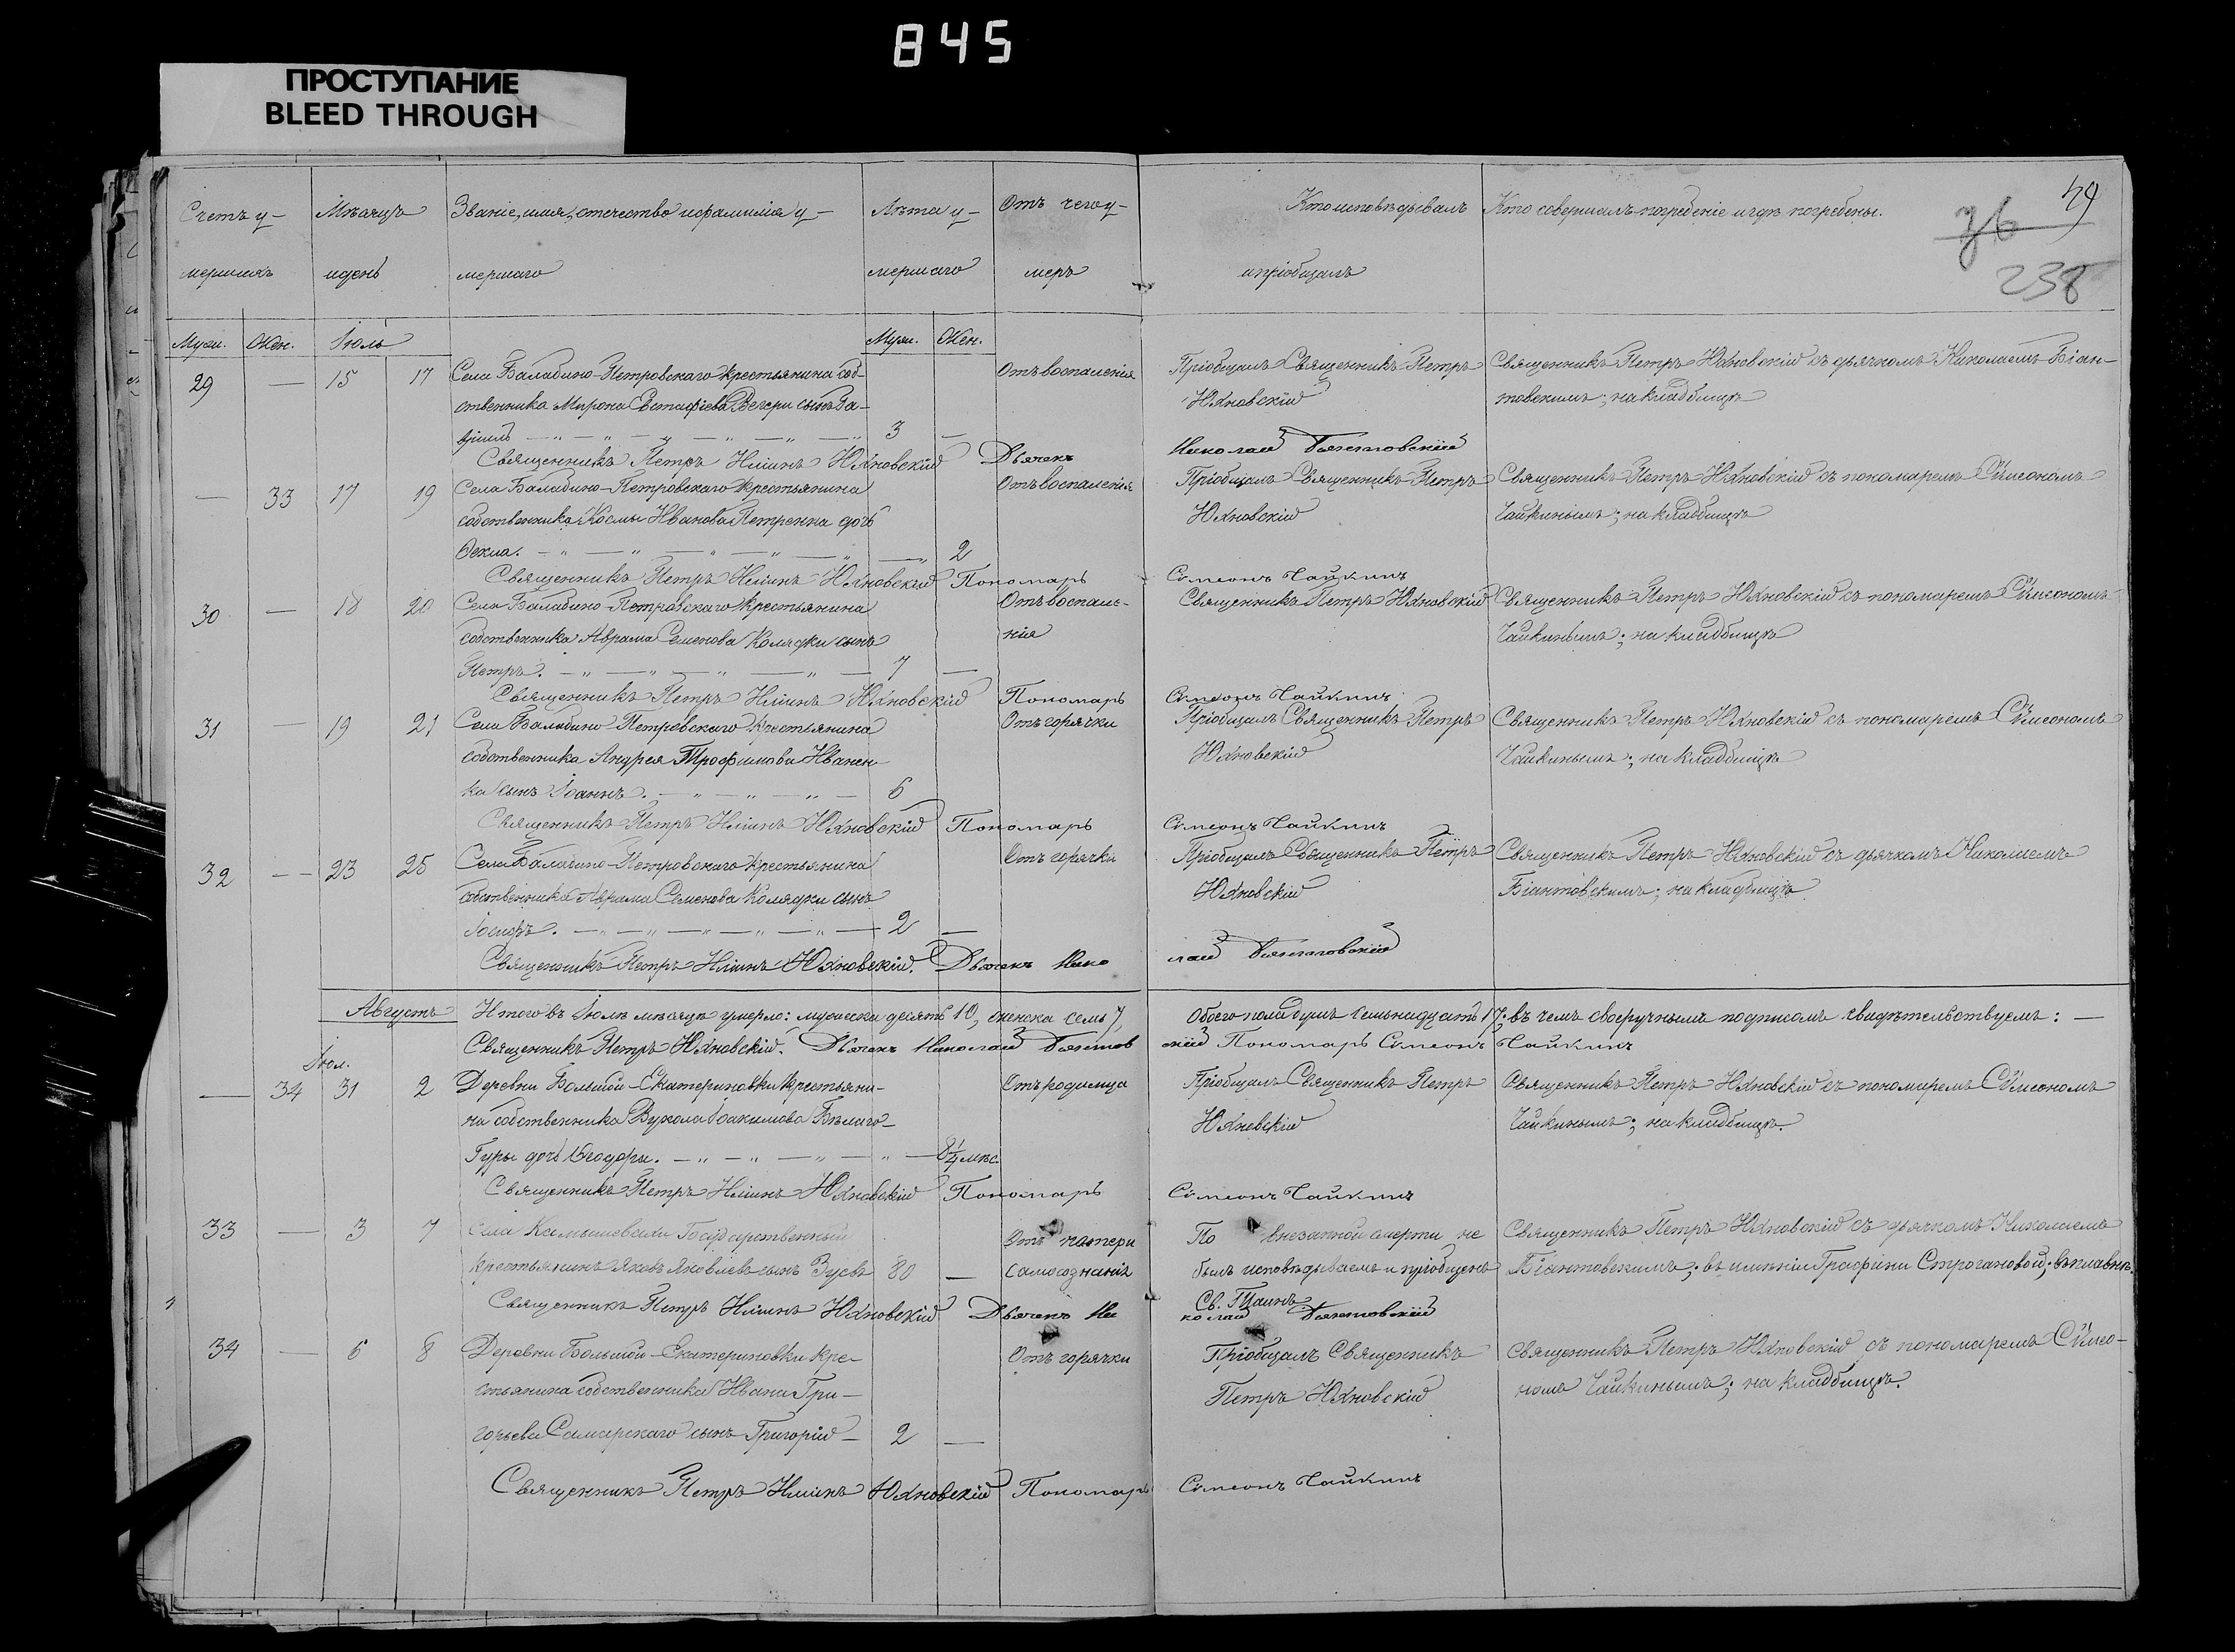 845
ПРОСТУПАНИЕ
BLEED THROUGH
Счетъ у- Мѣсяцъ Званіе, имя, отечество и фамилія у- Лѣта у- Отъ чего у- Кто исповѣдывалъ Кто совершалъ погребеніе и гдѣ погребены. 49
36
мершихъ и день мершаго мершаго меръ и пріобщалъ
238
Муж. Жен. Іюль Муж. Жен.
29 — 15 17 Села Балабино-Петровскаго крестьянина соб- Отъ воспаленія Пріобщалъ Священникъ Петръ Священникъ Петръ Юхновскій съ дьячкомъ Николаемъ Біан-
ственника Мирона Евстафіева Вечери сынъ Га- Юхновскій товскимъ; на кладбищѣ
вріилъ 3 —
Священникъ Петръ Иліинъ Юхновскій Дьячекъ Николай Біянтовскій
— 33 17 19 Села Балабино-Петровскаго крестьянина Отъ воспаленія Пріобщалъ Священникъ Петръ Священникъ Петръ Юхновскій съ пономаремъ Сѵмеономъ
собственника Космы Иванова Петренка дочь Юхновскій Чайкинымъ; на кладбищѣ
Ѳекла. — 2
Священникъ Петръ Иліинъ Юхновскій Пономарь Симеонъ Чайкинъ
30 — 18 20 Села Балабино-Петровскаго крестьянина Отъ воспале- Священникъ Петръ Юхновскій Священникъ Петръ Юхновскій съ пономаремъ Сѵмеономъ
собственника Аврама Семенова Колядки сынъ нія Чайкинымъ; на кладбищѣ
Петръ. 7 —
Священникъ Петръ Иліинъ Юхновскій Пономарь Симеонъ Чайкинъ
31 — 19 21 Села Балабино-Петровскаго крестьянина Отъ горячки Пріобщалъ Священникъ Петръ Священникъ Петръ Юхновскій съ пономаремъ Сѵмеономъ
собственника Андрея Трофимова Иванен- Юхновскій Чайкинымъ; на кладбищѣ
ка сынъ Іоаннъ. 6
Священникъ Петръ Иліинъ Юхновскій Пономарь Симеонъ Чайкинъ
32 — 23 25 Села Балабино-Петровскаго крестьянина Отъ горячки Пріобщалъ Священникъ Петръ Священникъ Петръ Юхновскій съ дьячкомъ Николаемъ
собственника Аврама Семенова Колядки сынъ Юхновскій Біантовскимъ; на кладбищѣ
Іосифъ. 2 —
Священникъ Петръ Иліинъ Юхновскій. Дьячекъ Николай Біянтовскій
Августъ Итого въ Іюлѣ мѣсяцѣ умерло: мужеска десять 10, женска семь 7, Обоего пола душъ семьнадцать 17; въ чемъ своеручнымъ подписомъ свидѣтельствуемъ: —
Священникъ Петръ Юхновскій. Дьячекъ Николай Біянтовскій Пономарь Симеонъ Чайкинъ
Іюл.
— 34 31 2 Деревни Большой-Екатериновки крестьяни- Отъ родимца Пріобщалъ Священникъ Петръ Священникъ Петръ Юхновскій съ пономаремъ Сѵмеономъ
на собственника Вукола Іоакимова Бѣлаго- Юхновскій Чайкинымъ; на кладбищѣ.
Гуры дочь Ѳеодора. 8¼ мѣс.
Священникъ Петръ Иліинъ Юхновскій Пономарь Симеонъ Чайкинъ
33 — 3 7 Села Камышевахи Государственный Отъ потери По внезапной смерти не Священникъ Петръ Юхновскій съ дьячкомъ Николаемъ
крестьянинъ Яковъ Яковлевъ сынъ Зуевъ 80 — самосознанія былъ исповѣдываемъ и пріобщенъ Біантовскимъ; въ имѣніи Графини Строгановой;
Св. Таинъ
Священникъ Петръ Иліинъ Юхновскій Дьячекъ Николай Біянтовскій
34 — 6 8 Деревни Большой-Екатериновки кре- Отъ горячки Пріобщалъ Священникъ Священникъ Петръ Юхновскій съ пономаремъ Сѵмео-
стьянина собственника Ивана Гри- Петръ Юхновскій номъ Чайкинымъ; на кладбищѣ.
горьева Самарскаго сынъ Григорій 2 —
Священникъ Петръ Иліинъ Юхновскій Пономарь Симеонъ Чайкинъ